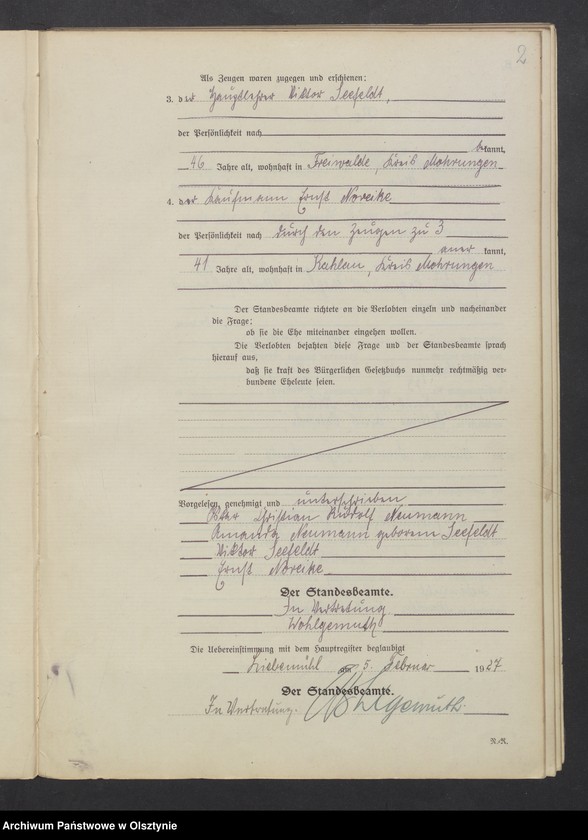 2
Als Zeugen waren zugegen und erschienen:
3. der Hauptlehrer Viktor Seefeldt,
der Persönlichkeit nach
bekannt,
46 Jahre alt, wohnhaft in Freiwalde, Kreis Mohrungen
4. der Kaufmann Ernst Noreike
der Persönlichkeit nach durch den Zeugen zu 3
aner kannt,
41 Jahre alt, wohnhaft in Kahlau, Kreis Mohrungen
Der Standesbeamte richtete an die Verlobten einzeln und nacheinander
die Frage:
ob sie die Ehe miteinander eingehen wollen.
Die Verlobten bejahten diese Frage und der Standesbeamte sprach
hierauf aus,
daß sie kraft des Bürgerlichen Gesetzbuchs nunmehr rechtmäßig ver-
bundene Eheleute seien.
Vorgelesen, genehmigt und unterschrieben
Christian Rudolf Neumann
Amanda Neumann geborene Seefeldt
Viktor Seefeldt
Ernst Noreike
Der Standesbeamte.
In Vertretung
Wohlgemuth
Die Uebereinstimmung mit dem Hauptregister beglaubigt
Liebemühl am 5. Februar 1927
Der Standesbeamte.
In Vertretung. Wohlgemuth.
R./R.
Archiwum Państwowe w Olsztynie